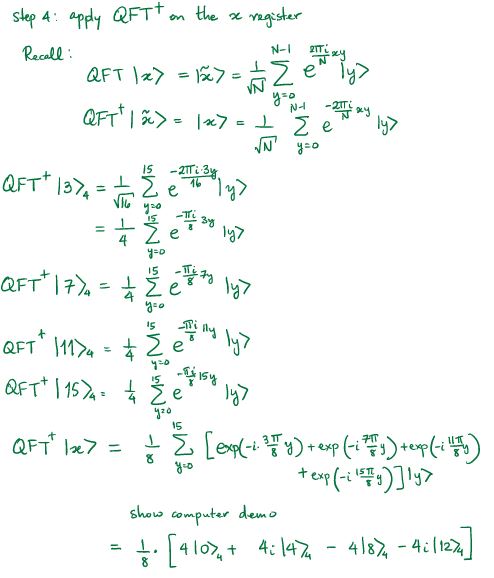 Step 4: apply QFT† on the x register
Recall:
QFT |x> = |x̃> = 1/√N ∑_{y=0}^{N-1} e^{2πi/N xy} |y>
QFT† |x̃> = |x> = 1/√N ∑_{y=0}^{N-1} e^{-2πi/N xy} |y>
QFT† |3>₄ = 1/√16 ∑_{y=0}^{15} e^{-2πi·3y/16} |y>
= 1/4 ∑_{y=0}^{15} e^{-πi/8 3y} |y>
QFT† |7>₄ = 1/4 ∑_{y=0}^{15} e^{-πi/8 7y} |y>
QFT† |11>₄ = 1/4 ∑_{y=0}^{15} e^{-πi/8 11y} |y>
QFT† |15>₄ = 1/4 ∑_{y=0}^{15} e^{-πi/8 15y} |y>
QFT† |x> = 1/8 ∑_{y=0}^{15} [exp(-i·3π/8 y) + exp(-i 7π/8 y) + exp(-i 11π/8 y)
+ exp(-i 15π/8 y)] |y>
show computer demo
= 1/8 · [4|0>₄ + 4i|4>₄ - 4|8>₄ - 4i|12>₄]